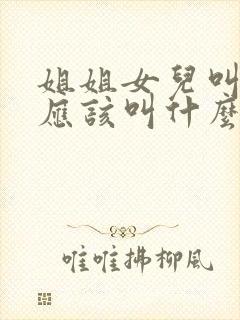 姐姐女兒叫
應該叫什麼
唯唯拂柳風